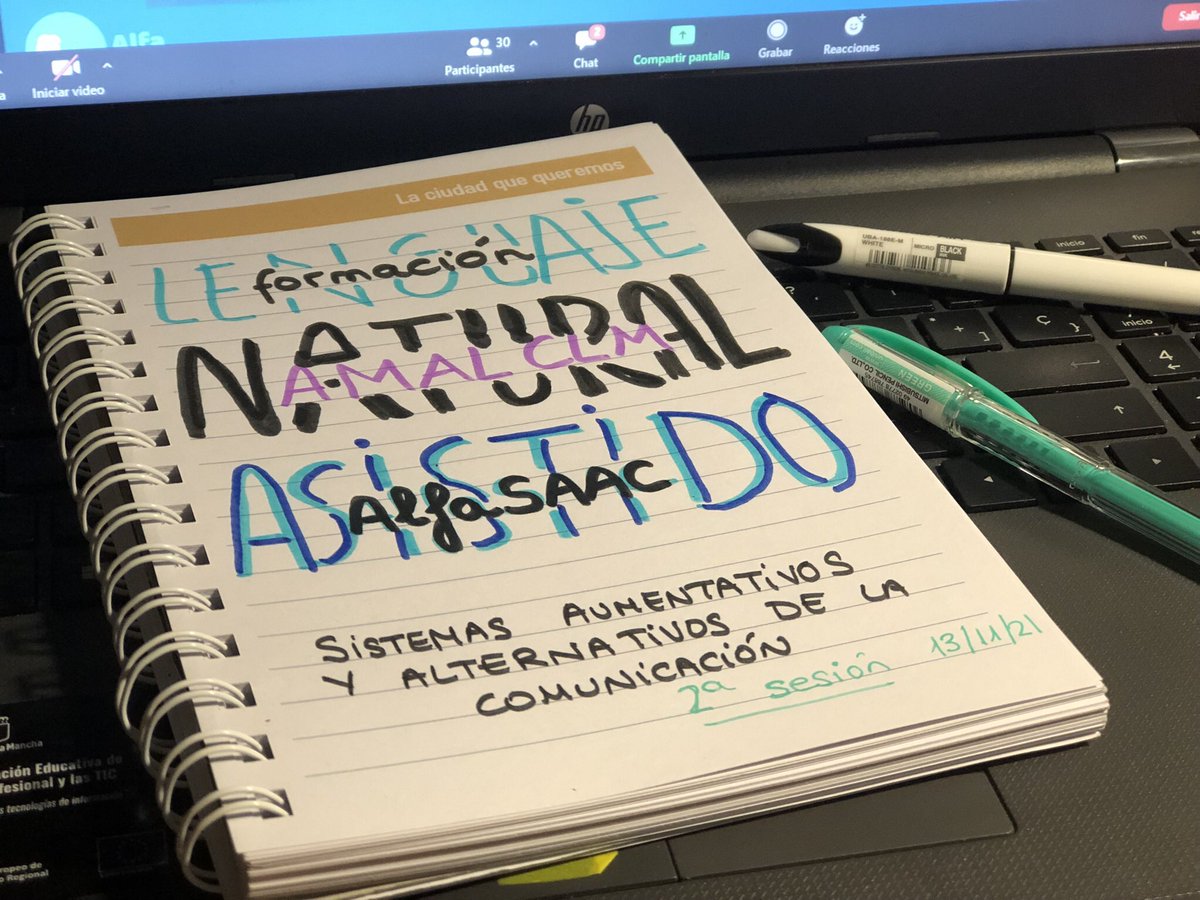 Alfa
30
2
Iniciar video
Participantes
Chat
Compartir pantalla
Grabar
Reacciones
Salir
hp
La ciudad que queremos
LENGUAJE
formación
NATURAL
AMAL CLM
ASISTIDO
AlfaSAAC
SISTEMAS AUMENTATIVOS
Y ALTERNATIVOS DE LA
COMUNICACIÓN
2ª sesión 13/11/21
UBA-188E-M
WHITE
MICRO
BLACK
MITSUBISHI PENCIL CO.,LTD.
GREEN
inicio
fin
inicio
Ç
4
a Mancha
ación Educativa de
ofesional y las TIC
s tecnologías de
uropeo de
o Regional